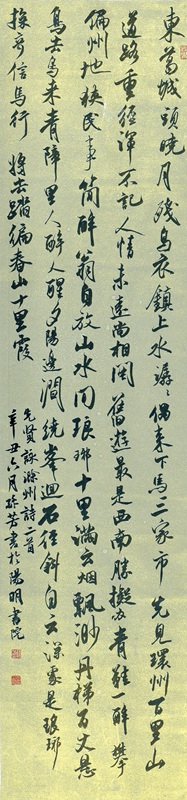 東葛城頭曉月殘烏衣鎮上水潺潺偶來下馬三家市先見環州百里山
道路重經渾不記人情未遠尚相關舊遊最是西南勝擬著青鞋一醉攀
偏州地狹民事簡醉翁自放山水間琅琊十里滿云烟飄渺丹梯百丈懸
鳥去鳥来青嶂里人醉人醒夕陽邊澗繞峯迴石徑斜白云深處是琅琊
探奇信馬行將去踏徧春山十里霞
先賢詠滁州詩二首
辛丑六月 芳書於陽明書院